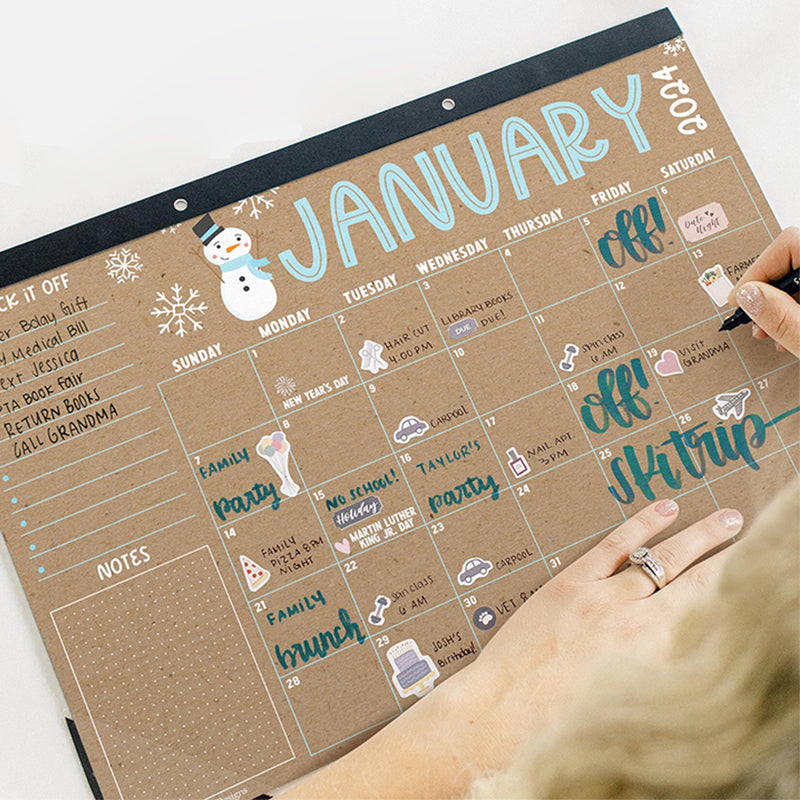 JANUARY
2024
CK IT OFF
er Bolay Gift
y Medical Bill
ext Jessica
PTA BOOK FAIR
RETURN BOOKS
CALL GRANDMA
NOTES
SUNDAY MONDAY TUESDAY WEDNESDAY THURSDAY FRIDAY SATURDAY
1
NEW YEAR'S DAY
2
HAIR CUT
4:00 PM
3
LIBRARY BOOKS
DUE DUE!
4
5
off!
6
Date
Night
7
FAMILY
party
8
9
CARPOOL
10
11
Spin class
6 AM
12
13
FARME
14
FAMILY
PIZZA 8PM
NIGHT
15
NO SCHOOL!
Holiday
MARTIN LUTHER
KING JR. DAY
16
TAYLOR'S
party
17
NAIL APT.
3 PM
18
off!
19
VISIT
GRANDMA
21
FAMILY
brunch
22
Spin class
6 AM
23
CARPOOL
24
25
ski trip
26
27
28
29
JOSH'S
Birthday!
30
VET
31
signs